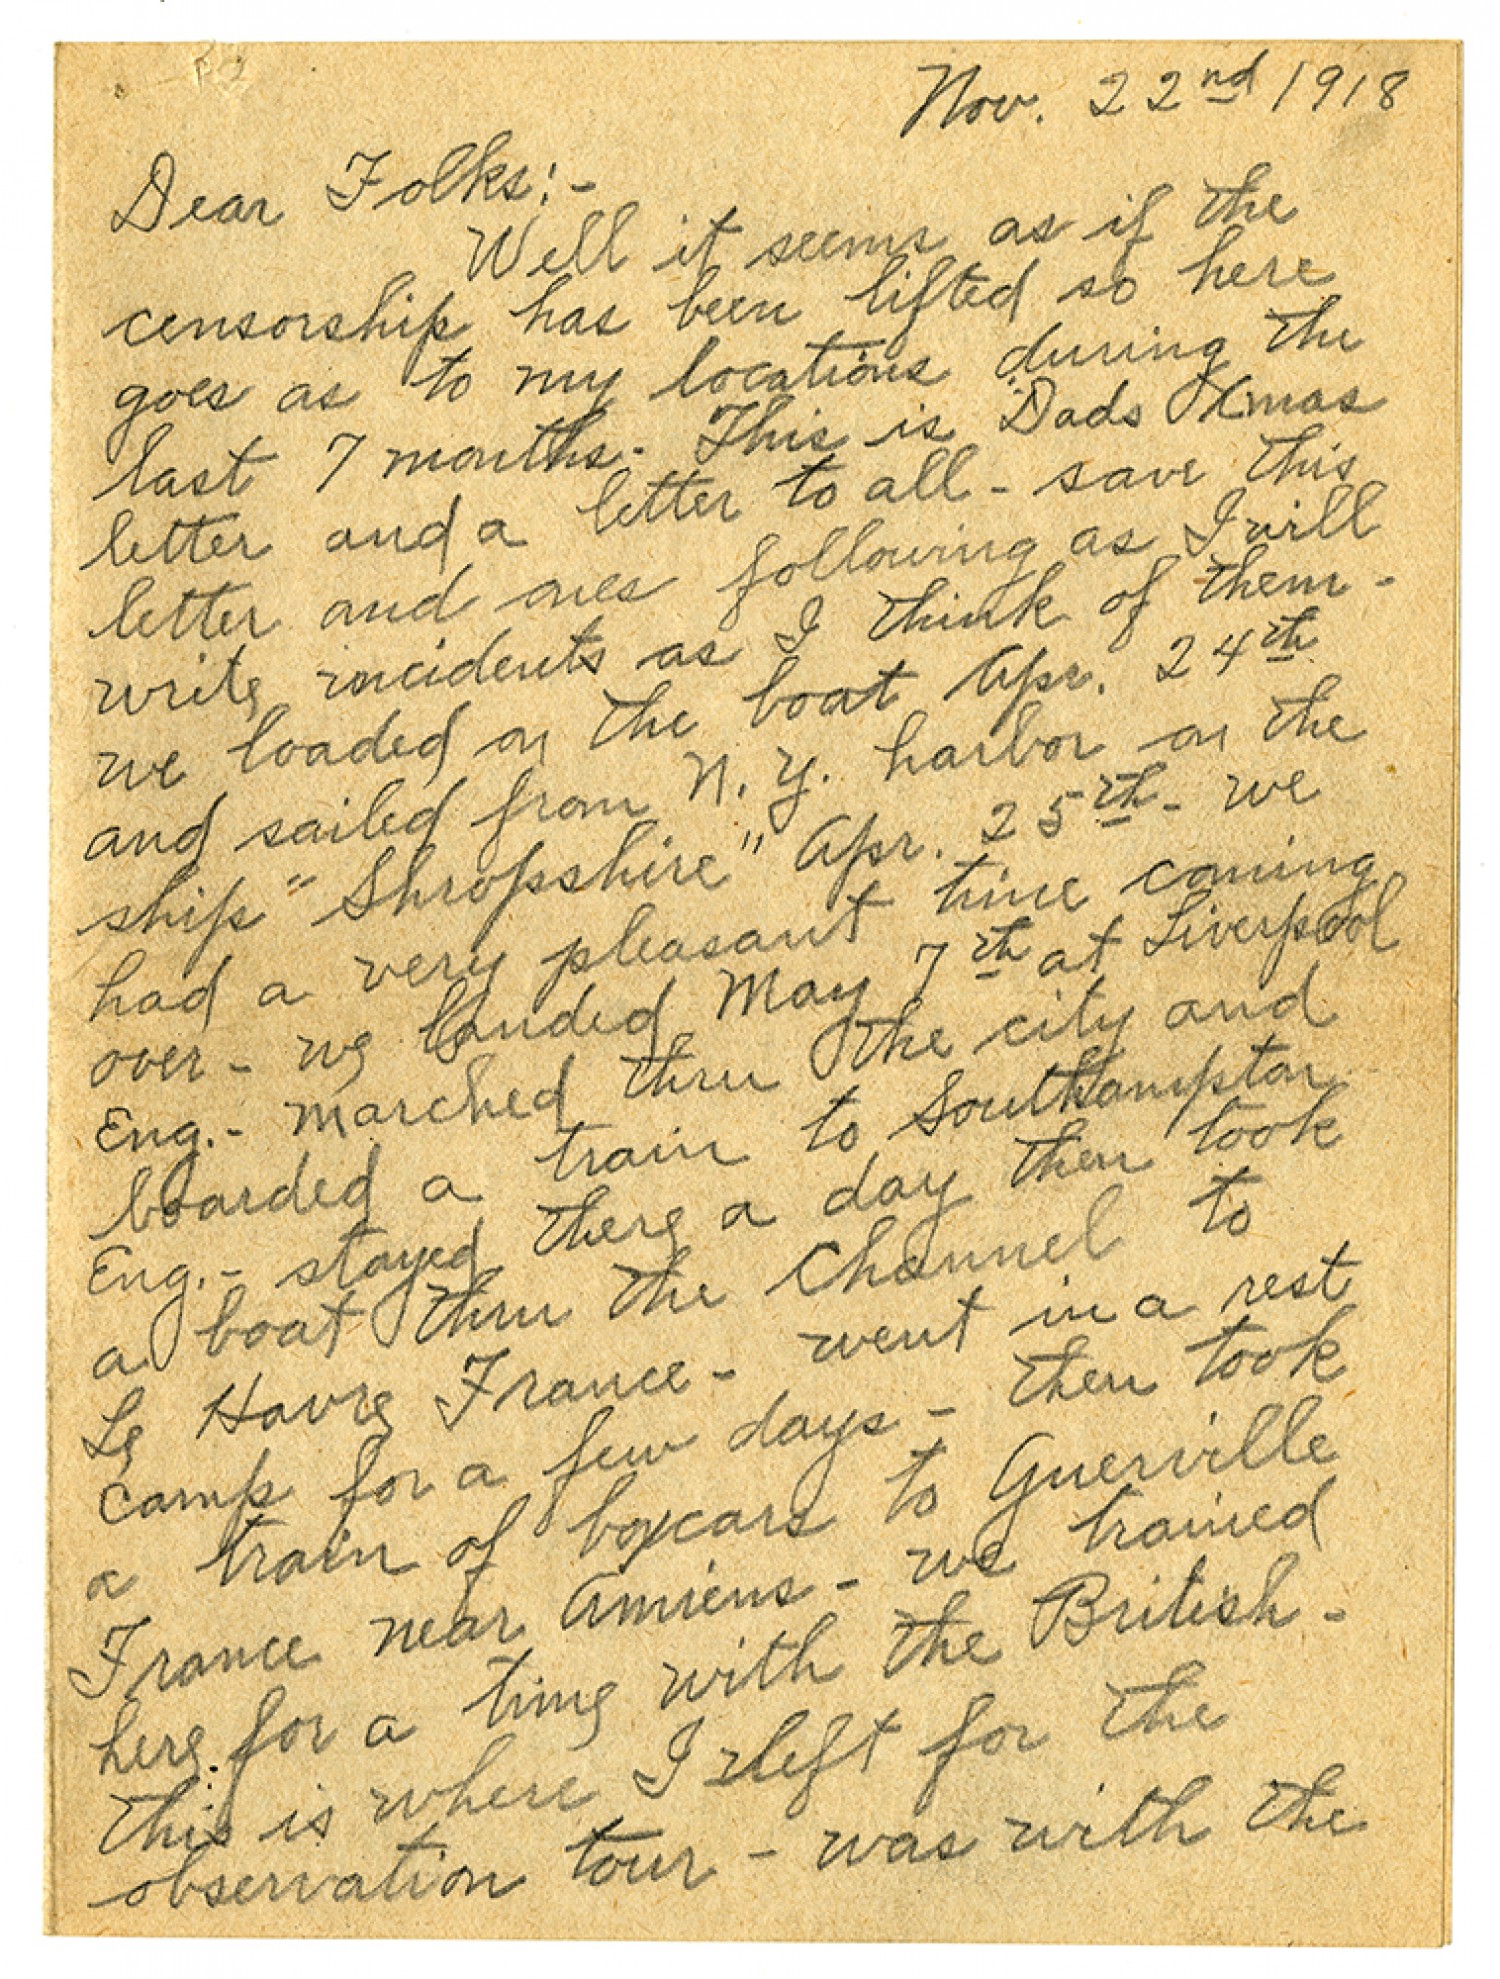 Nov. 22nd 1918
Dear Folks:-
Well it seems as if the
censorship has been lifted so here
goes as to my locations during the
last 7 months. This is Dads Xmas
letter and a letter to all - save this
letter and ones following as I will
write incidents as I think of them -
we loaded on the boat Apr. 24th
and sailed from N.Y. harbor on the
ship "Shropshire" Apr. 25th - we
had a very pleasant time coming
over - we landed May 7th at Liverpool
Eng. - marched thru the city and
boarded a train to Southampton
Eng. - stayed there a day then took
a boat thru the Channel to
Le Havre France - went in a rest
camp for a few days - then took
a train of boxcars to Guerville
France near Amiens - we trained
here for a time with the British -
this is where I left for the
observation tour - was with the